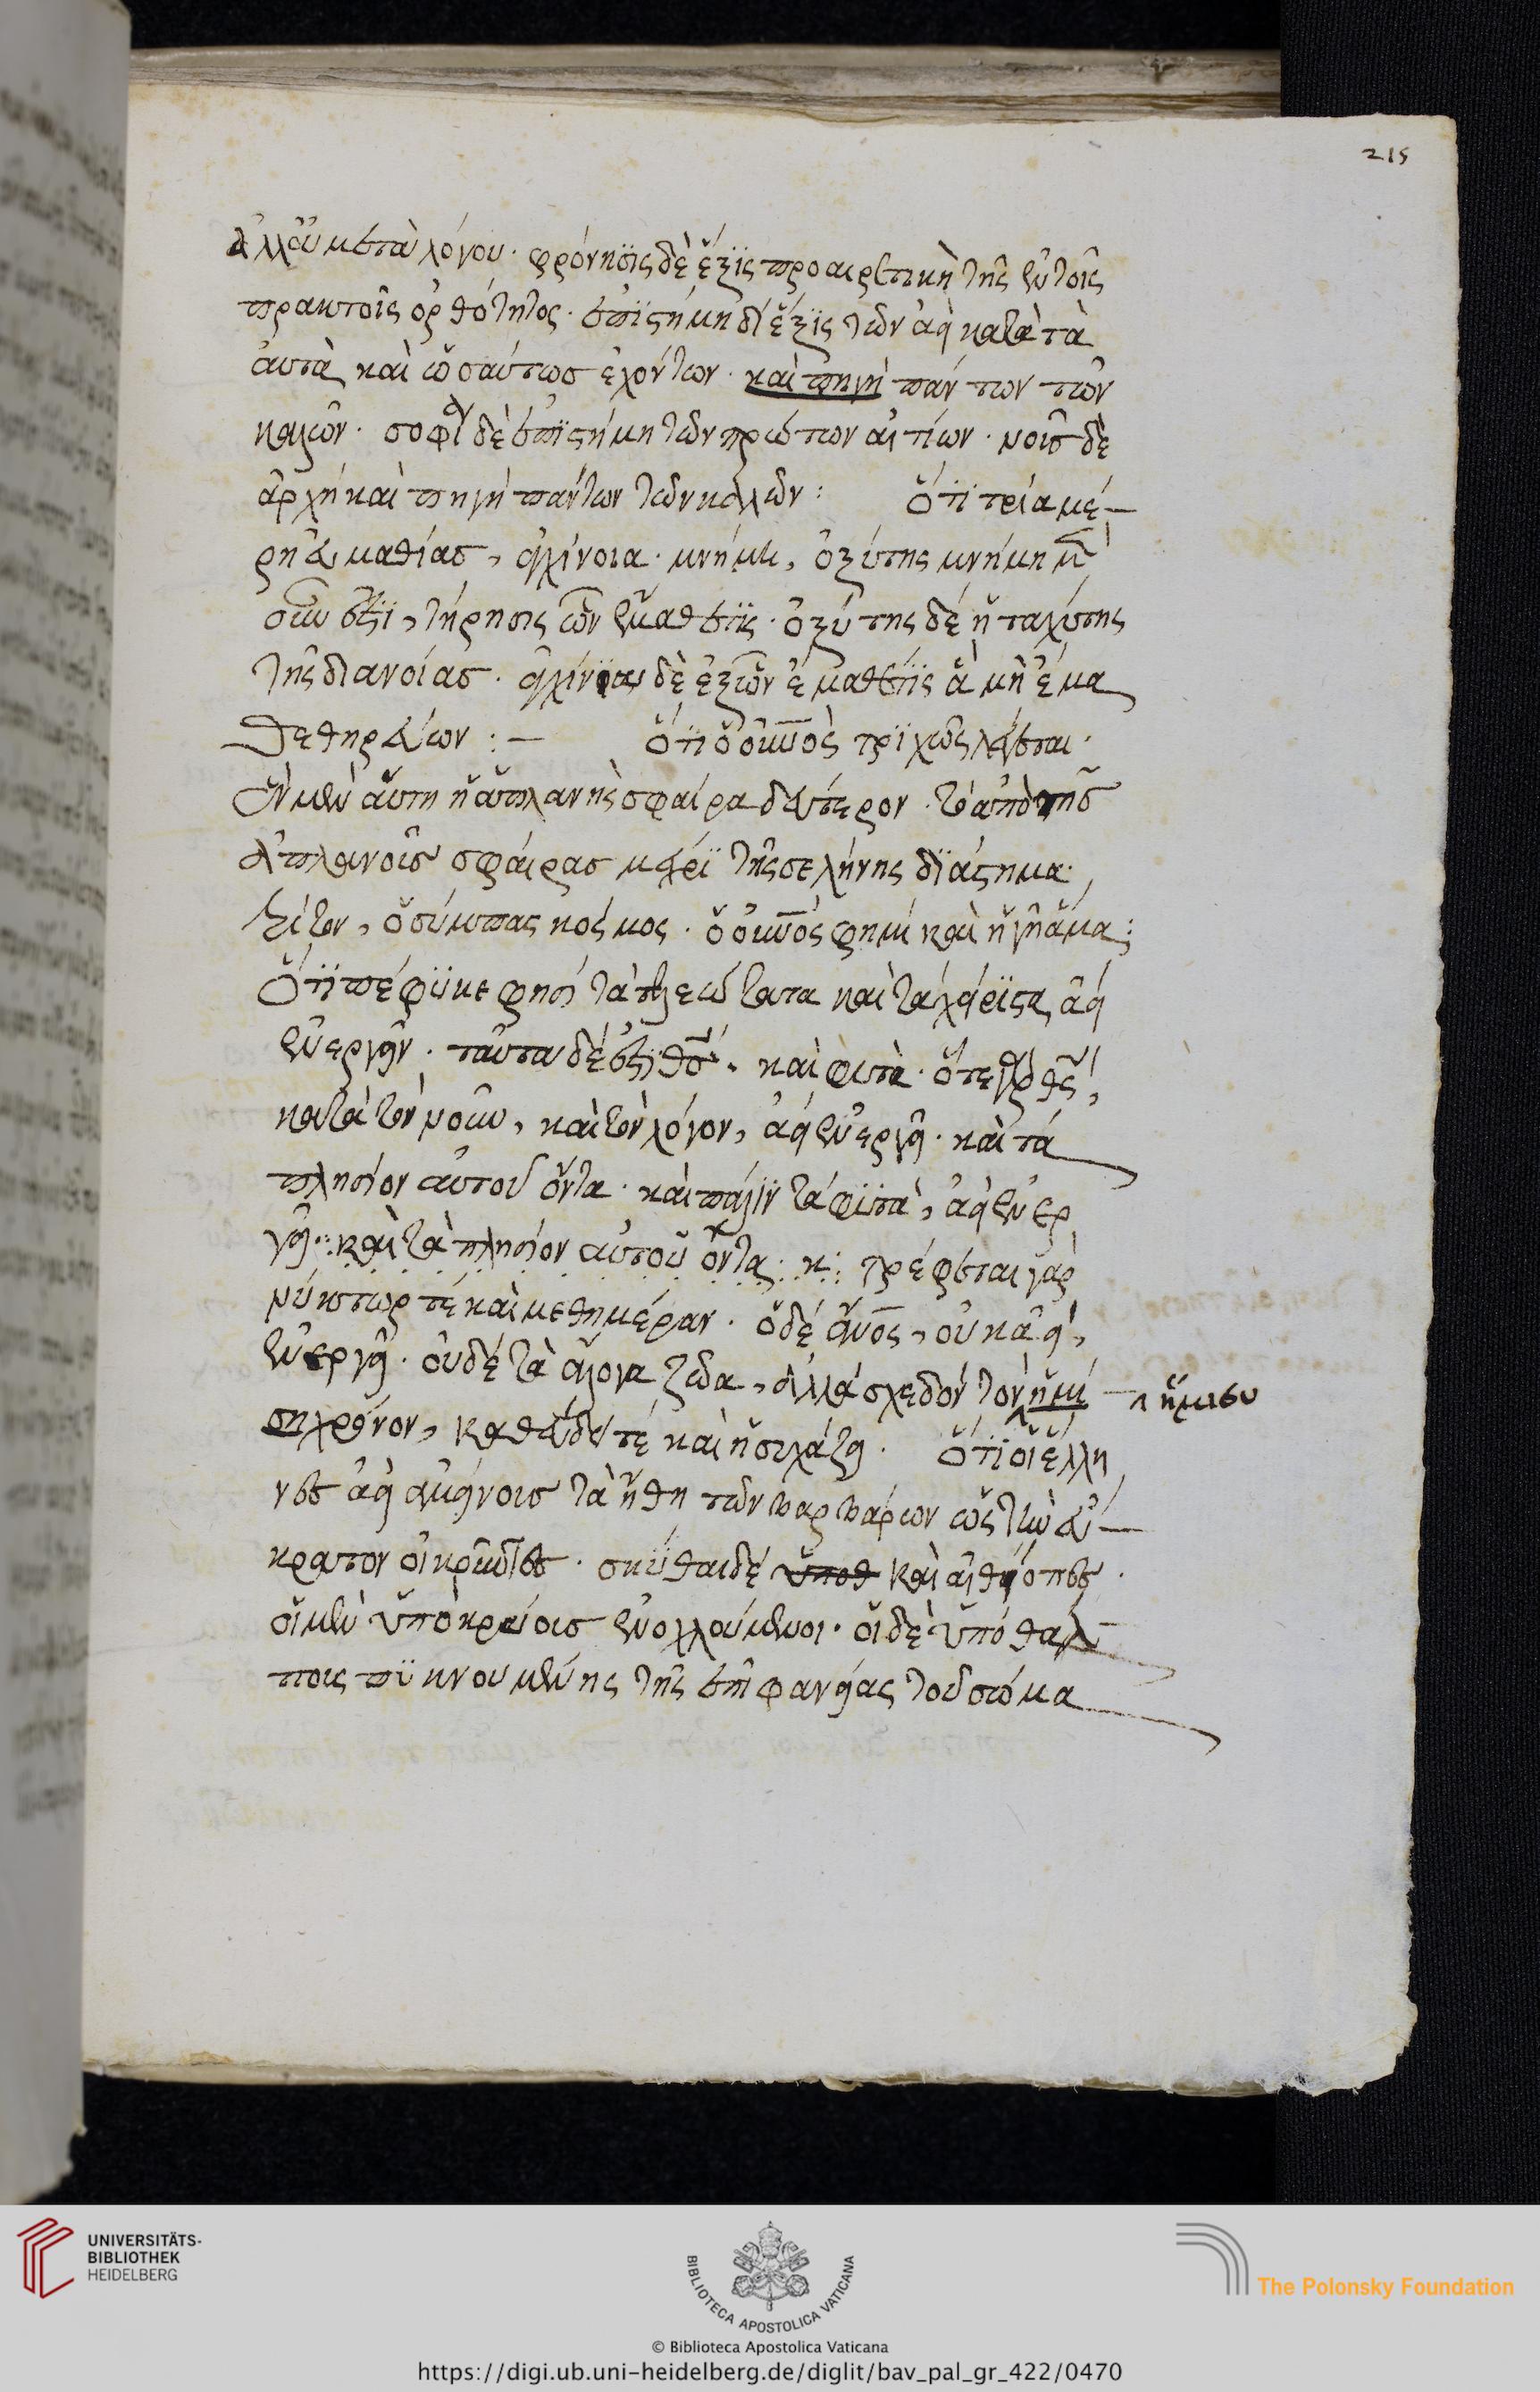 215
ἀλλὰ μετὰ λόγου· φρόνησϊς δὲ ἕξϊς προαιρετικὴ τῆς ἐν τοῖς
πρακτοῖς ὀρθότητος· ἐπϊστήμη δὲ ἕξϊς τῶν ἀεὶ κατὰ τὰ
ἀυτὰ καὶ ὡσαύτως ἐχόντων· καὶ πηγὴ πάντων τῶν
καλῶν· σοφία δὲ ἐπϊστήμη τῶν πρώτων αἰτίων· νοῦς δὲ
ἀρχή καὶ πηγὴ πάντων τῶν καλῶν: Ὅτϊ τρία μέ-
ρη εὐμαθίας, ἀγχίνοια· μνήμη, ὀξύτης μνήμη μὲν
οὖν ἐστϊ, τήρησις ὧν ἔμαθέ τϊς· ὀξύτης δέ ἡ ταχύτης
τῆς διανοίας· ἀγχίνοια δὲ ἐξ ὧν ἔμαθέ τϊς ἃ μὴ ἔμα
θε θηρεύων :- ὅτϊ ὁ οὐνος τρϊχῶς λέγεται·
ἓν μὲν ἄυτη ἡ ἀπλανὴς σφαίρα δεύτερον· τὸ ἀπὸ τῆς
ἀπλανοῦς σφάιρας μέχρϊ τῆς σελήνης δϊάστημα·
τρίτον, ὁ σύμπας κόσμος· ὁ οὐνός φημι καὶ ἡ γῆ ἅμα:
Ὅτϊ πέφϋκε φησὶ τὰ τελεώτατα καὶ τὰ χείρϊστα, ἀεὶ
ἐνεργεῖν· ταῦτα δέ ἐστϊ θς· καὶ φυτὰ· ὅτε γὰρ θς,
κατὰ τὸν νοῦν, καὶ τὸν λόγον, ἀεὶ ἐνεργεῖ· καὶ τά
πλησίον αὐτοῦ ὄντα· καὶ πάλϊν τὰ φϋτὰ, ἀεὶ ἐνερ
γεῖ·: καὶ τὰ πλησίον αὐτοῦ ὄντα: κ: τρέφεται γὰρ
νύκτωρ τέ καὶ μεθημέραν· ὁ δέ ἄνος, οὐκ ἀεὶ,
ἐνεργεῖ· οὐδέ τὰ ἄλογα ζῶα, ἀλλὰ σχεδόν τὸν ἥμι
^ ἥμισυ
ση χρόνον, καθεύδει τέ καὶ ἡσυχάζει· Ὅτϊ οἱ ἕλλη
νες ἀεὶ ἀμείνους τὰ ἤθη τῶν βαρβάρων ὡς τὴν εὔ-
κρατον οἰκοῦντες· σκϋθαι δέ ὑποθ καὶ αἰθίοπες·
οἱ μὲν ὑπὸ κρύους ἐνοχλούμενοι· οἱ δὲ ὑπό θαλ
πους πϋκνουμένης τῆς ἐπιφανείας τοῦ σώμα
UNIVERSITÄTS-
BIBLIOTHEK
HEIDELBERG
BIBLIOTECA APOSTOLICA VATICANA
The Polonsky Foundation
© Biblioteca Apostolica Vaticana
https://digi.ub.uni-heidelberg.de/diglit/bav_pal_gr_422/0470